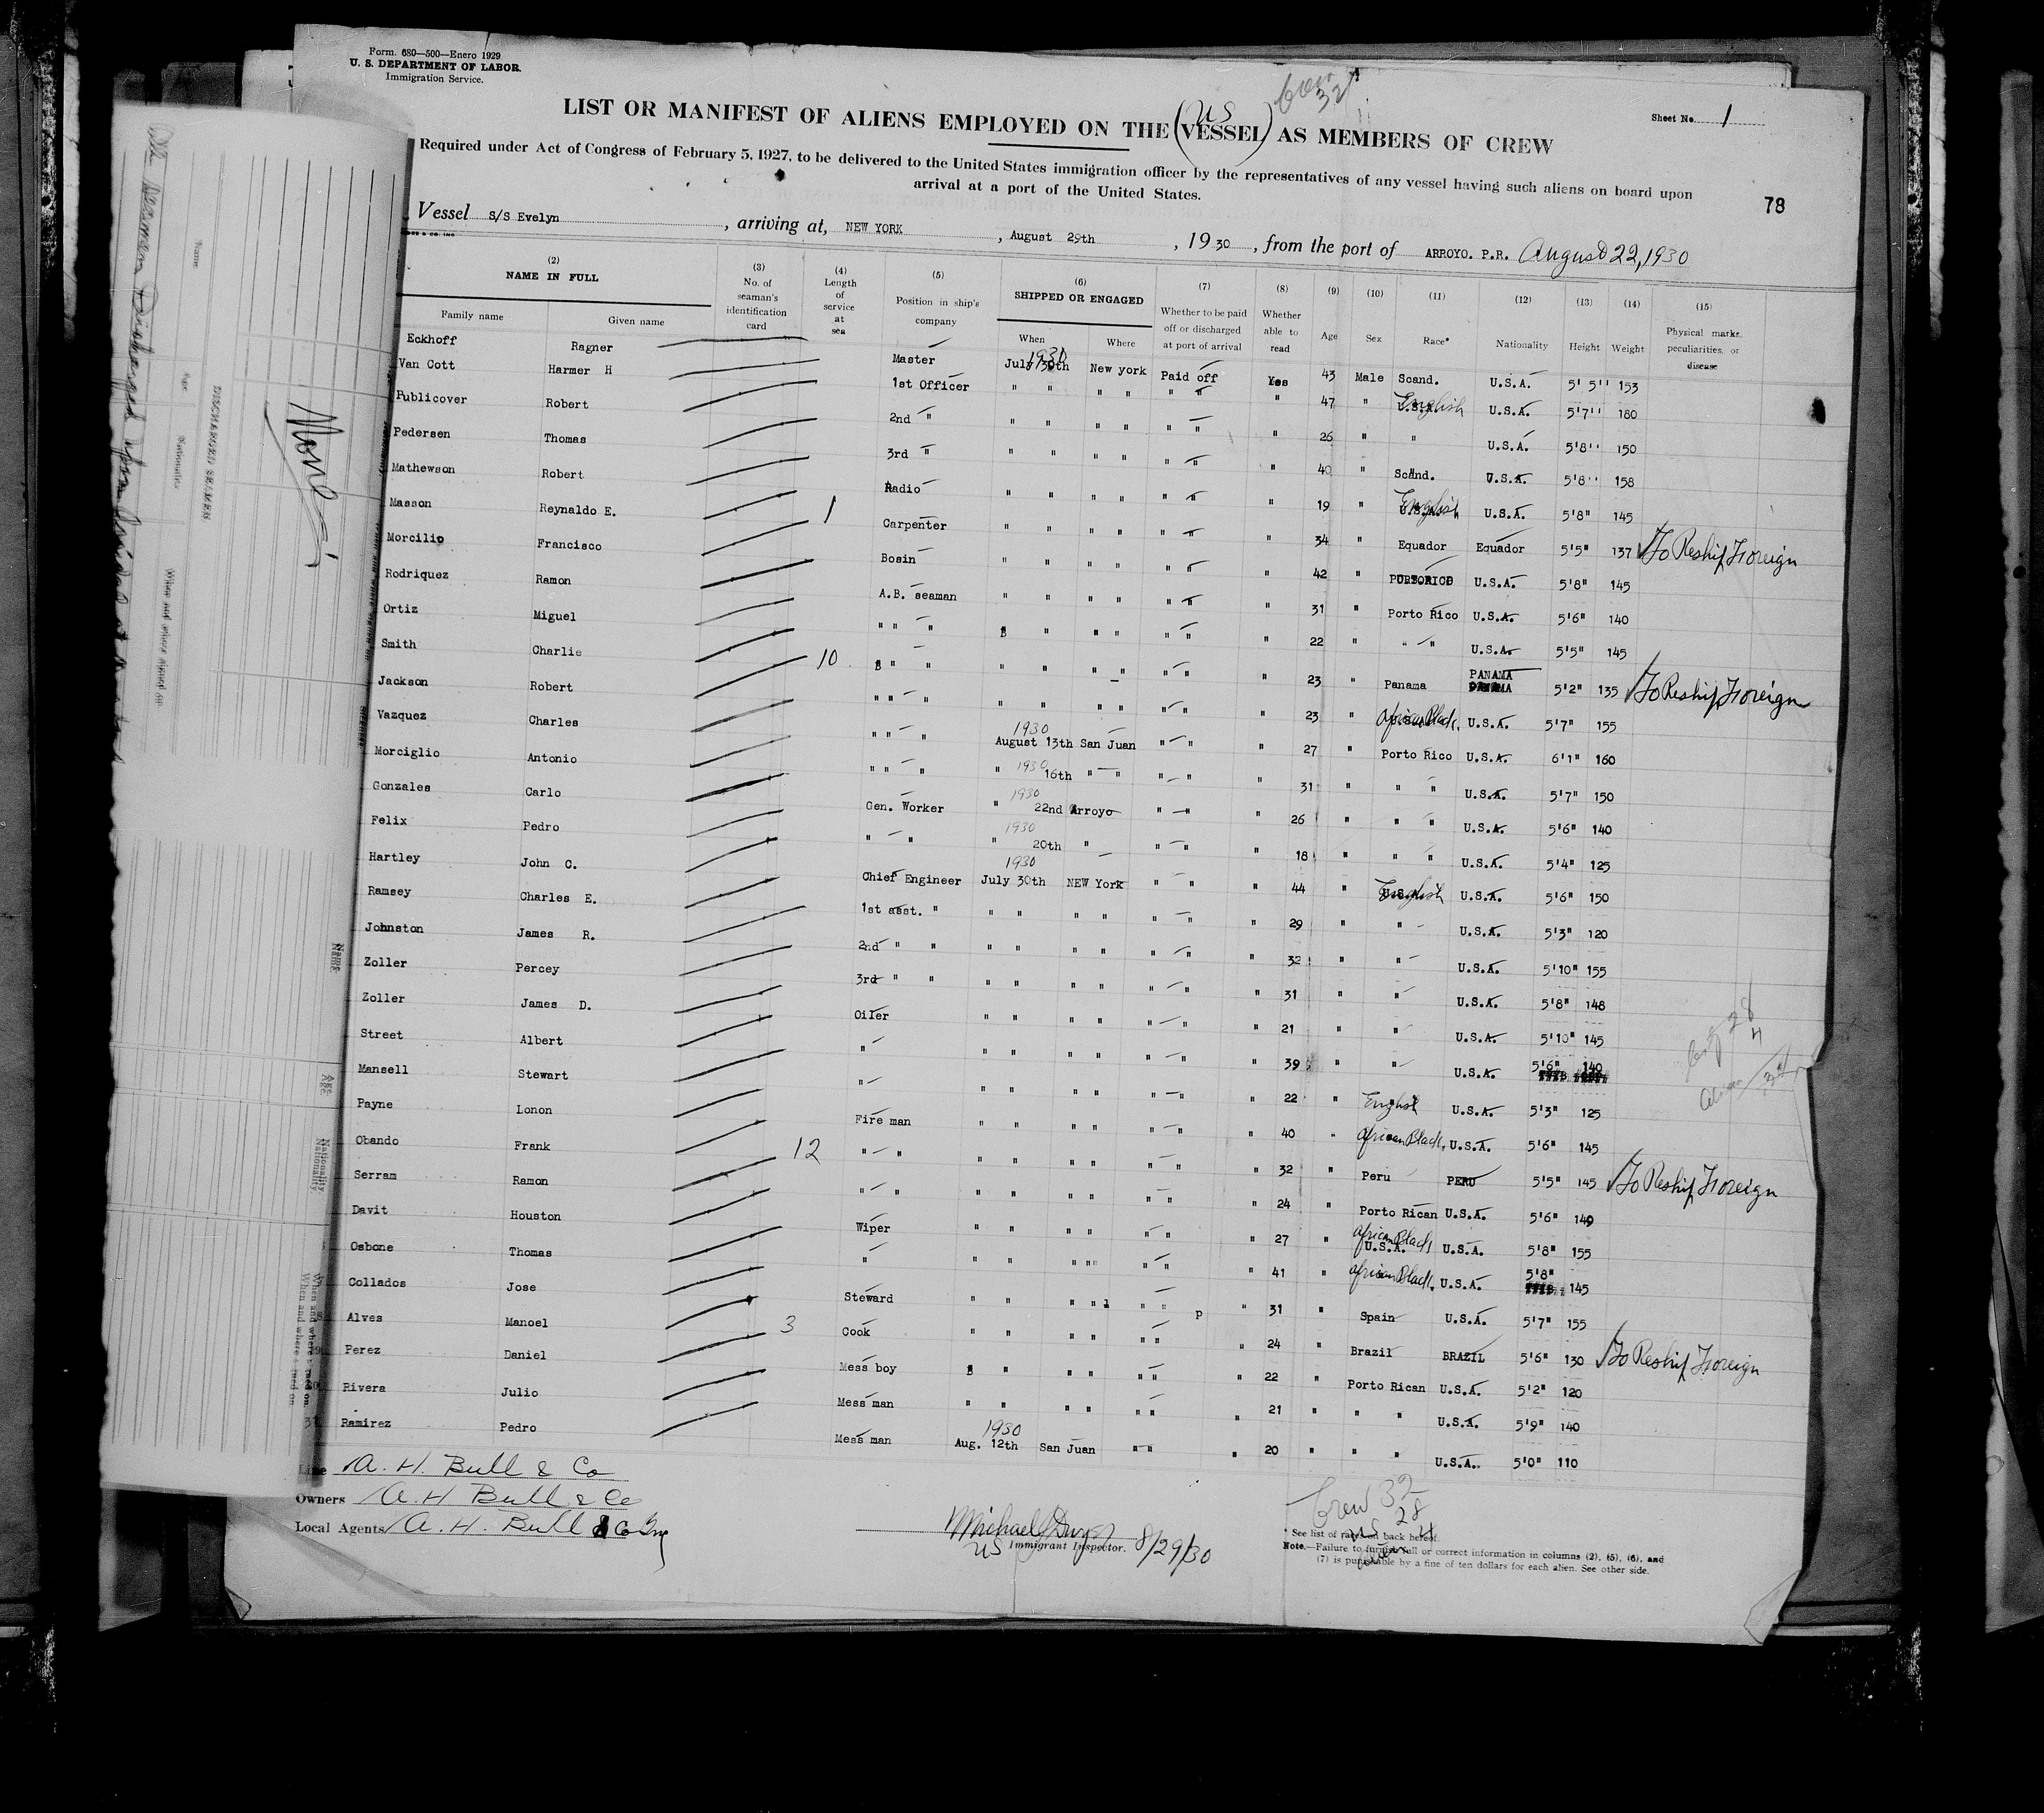 Form. 680—500—Enero 1929
U. S. DEPARTMENT OF LABOR.
Immigration Service.
Sheet No. 1
LIST OR MANIFEST OF ALIENS EMPLOYED ON THE (VESSEL) AS MEMBERS OF CREW
US
Required under Act of Congress of February 5, 1927, to be delivered to the United States immigration officer by the representatives of any vessel having such aliens on board upon
arrival at a port of the United States.
78
Vessel S/S Evelyn, arriving at, NEW YORK, August 29th, 1930, from the port of ARROYO. P.R. August 22, 1930
(2) NAME IN FULL Family name Given name (3) No. of seaman's identification card (4) Length of service at sea (5) Position in ship's company (6) SHIPPED OR ENGAGED When Where (7) Whether to be paid off or discharged at port of arrival (8) Whether able to read (9) Age (10) Sex (11) Race* (12) Nationality (13) Height (14) Weight (15) Physical marks, peculiarities, or disease
Eckhoff Ragner Master July 30th 1930 New york Paid off Yes 43 Male Scand. U.S.A. 5'5" 153
Van Cott Harmer H 1st Officer " " " " " " " 47 " English U.S.A. 5'7" 180
Publicover Robert 2nd " " " " " " " " 26 " " U.S.A. 5'8" 150
Pedersen Thomas 3rd " " " " " " " " 40 " Scand. U.S.A. 5'8" 158
Mathewson Robert Radio " " " " " " " 19 " English U.S.A. 5'8" 145
Masson Reynaldo E. 1 Carpenter " " " " " " " 34 " Equador Equador 5'5" 137 To Reship Foreign
Morcilio Francisco Bosin " " " " " " " 42 " PORTORICO U.S.A. 5'8" 145
Rodriquez Ramon A.B. seaman " " " " " " " 31 " Porto Rico U.S.A. 5'6" 140
Ortiz Miguel " " " " " " " " " " 22 " " " U.S.A. 5'5" 145
Smith Charlie 10 " " " " " " " " " 23 " Panama PANAMA 5'2" 135 To Reship Foreign
Jackson Robert " " " " " " " " " " 23 " African Black. U.S.A. 5'7" 155
Vazquez Charles " " " 1930 August 13th San Juan " " " 27 " Porto Rico U.S.A. 6'1" 160
Morciglio Antonio " " " " 1930 16th " " " " " 31 " " " U.S.A. 5'7" 150
Gonzales Carlo Gen. Worker " 1930 22nd Arroyo " " " 26 " " " U.S.A. 5'6" 140
Felix Pedro " " " 1930 20th " " " " 18 " " " U.S.A. 5'4" 125
Hartley John C. Chief Engineer 1930 July 30th NEW York " " " 44 " English U.S.A. 5'6" 150
Ramsey Charles E. 1st asst. " " " " " " " " 29 " " U.S.A. 5'3" 120
Johnston James R. 2nd " " " " " " " " " 32 " " U.S.A. 5'10" 155
Zoller Percey 3rd " " " " " " " " " 31 " " U.S.A. 5'8" 148
Zoller James D. Oiler " " " " " " " 21 " " U.S.A. 5'10" 145
Street Albert " " " " " " " " 39 " " U.S.A. 5'6" 140
Mansell Stewart " " " " " " " " 22 " English U.S.A. 5'3" 125
Payne Lonon Fire man " " " " " " " 40 " African Black. U.S.A. 5'6" 145
Obando Frank 12 " " " " " " " " " 32 " Peru PERU 5'5" 145 To Reship Foreign
Serram Ramon " " " " " " " " " 24 " Porto Rican U.S.A. 5'6" 149
Davit Houston Wiper " " " " " " " 27 " African Black U.S.A. U.S.A. 5'8" 155
Osbone Thomas " " " " " " " " 41 " African Black. U.S.A. 5'8" 145
Collados Jose Steward " " " " " " p " 31 " Spain U.S.A. 5'7" 155
Alves Manoel 3 Cook " " " " " " " 24 " Brazil BRAZIL 5'6" 130 To Reship Foreign
Perez Daniel Mess boy " " " " " " " 22 " Porto Rican U.S.A. 5'2" 120
Rivera Julio Mess man " " " " " " " 21 " " " U.S.A. 5'9" 140
Ramirez Pedro Mess man 1930 Aug. 12th San Juan " " " 20 " " " U.S.A. 5'0" 110
Line A. H. Bull & Co
Owners A. H Bull & Co
Local Agents A. H. Bull & Co Inc
US Immigrant Inspector. 8/29/30
Crew 32
US 28
4
* See list of races on back hereof.
Note.—Failure to furnish full or correct information in columns (2), (5), (6), and
(7) is punishable by a fine of ten dollars for each alien. See other side.
DISCHARGED SEAMEN
Name
Age
Nationality
When and where signed on
None